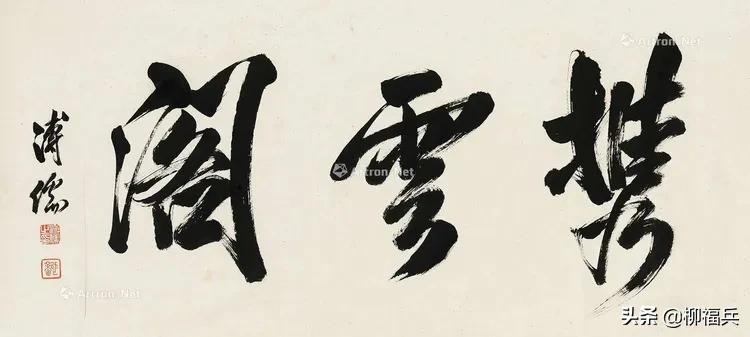 携雲閣
溥儒
Artron.Net
Artron.Net
Artron.Net
头条 @柳福兵